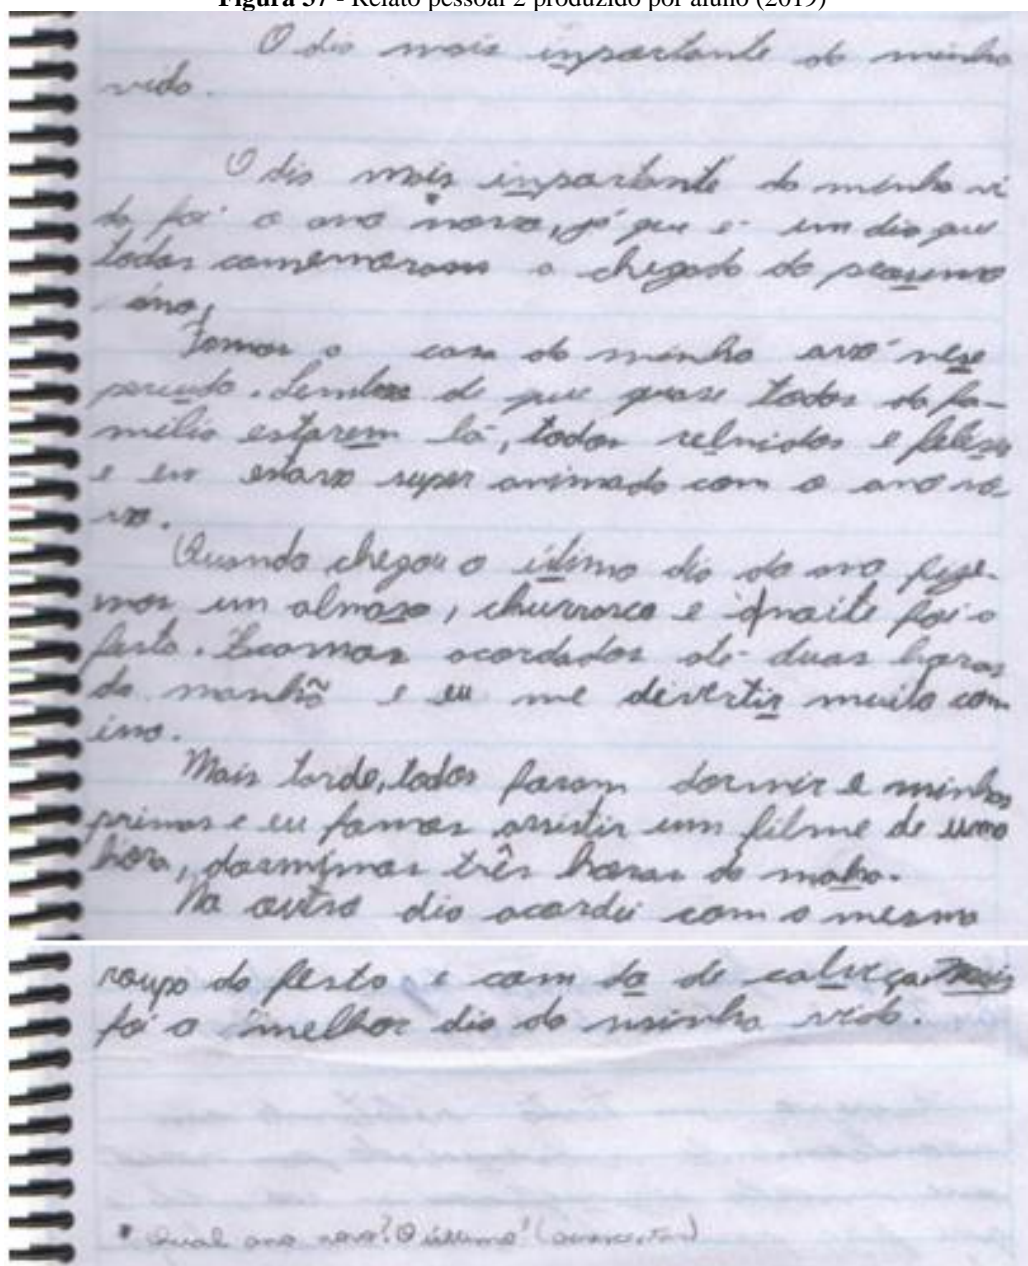 Figura 37 - Relato pessoal 2 produzido por aluno (2019)
O dia mais inportante da minha
vida.
O dia mais inportante da minha vi
da foi o ano novo, já que é um dia que
todos comemoram a chegada do prosimo
ano,
Fomos a casa da minha avó nese
periudo. Lembro de que quase todos da fa-
milia estarem lá, todos relnidos e felises
e eu estava super animado com o ano no-
vo.
Quando chegou o útimo dia do ano fize-
mos um almoso, churrasco e a noite foi a
festa. Ficamos acordados até duas horas
da manhã e eu me divertir muito com
isso.
Mais tarde, todos foram dormir e minhas
primas e eu fomos assistir um filme de uma
hora, dormimos três horas da maha.
No outro dia acordei com a mesma
roupa da festa e com do de cabeça. Mais
foi o melhor dia da minha vida.
* Qual ano novo? O último! (acrescentar)